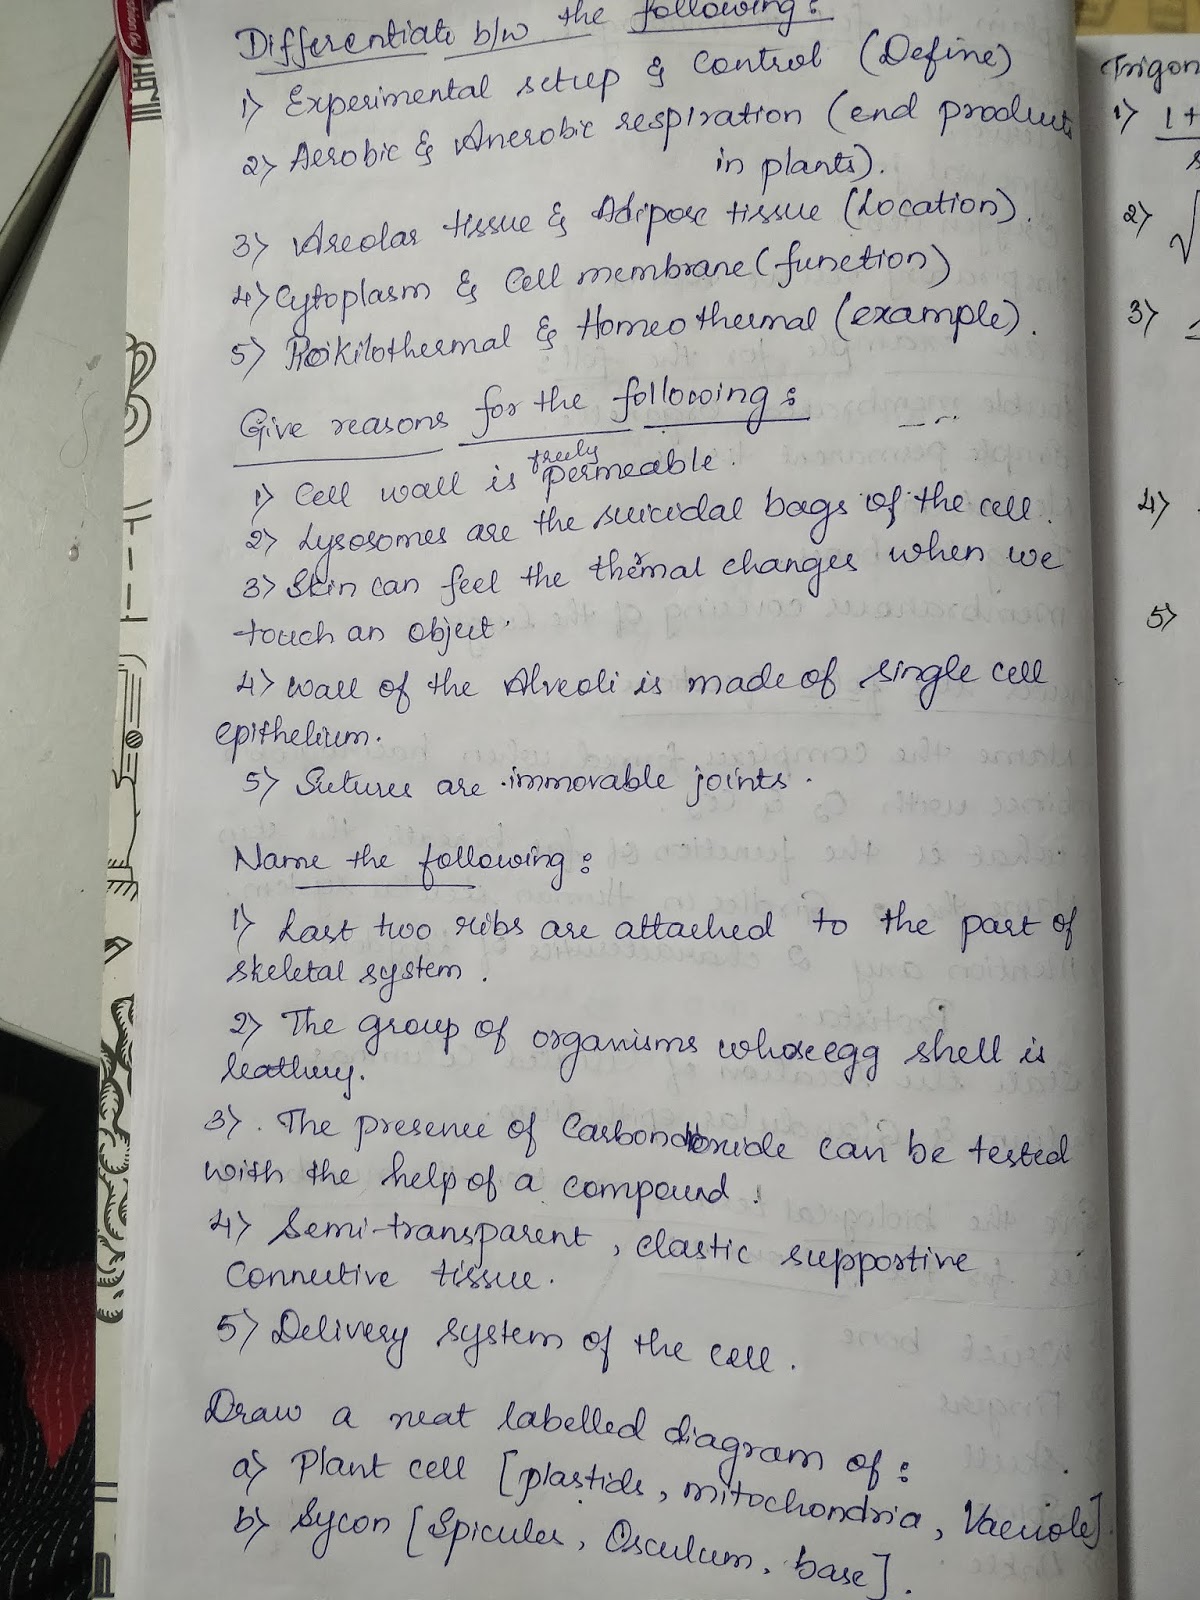 Differentiate b/w the following:
1) Experimental setup & control (Define)
2) Aerobic & Anerobic respiration (end products
in plants).
3) Areolar tissue & Adipose tissue (Location).
4) Cytoplasm & Cell membrane (function)
5) Poikilothermal & Homeothermal (example).
Give reasons for the following:
freely
1) Cell wall is permeable.
2) Lysosomes are the suicidal bags of the cell.
3) Skin can feel the thermal changes when we
touch an object.
4) Wall of the Alveoli is made of single cell
epithelium.
5) Sutures are immovable joints.
Name the following:
1) Last two ribs are attached to the part of
skeletal system.
2) The group of organisms whose egg shell is
leathery.
3). The presence of Carbondioxide can be tested
with the help of a compound.
4) Semi-transparent, elastic supportive
Connective tissue.
5) Delivery system of the cell.
Draw a neat labelled diagram of:
a) Plant cell [plastids, mitochondria, Vacuole]
b) Sycon [Spicules, Osculum, base].
(Trigon
1) 1+
2) √
3)
4)
5)